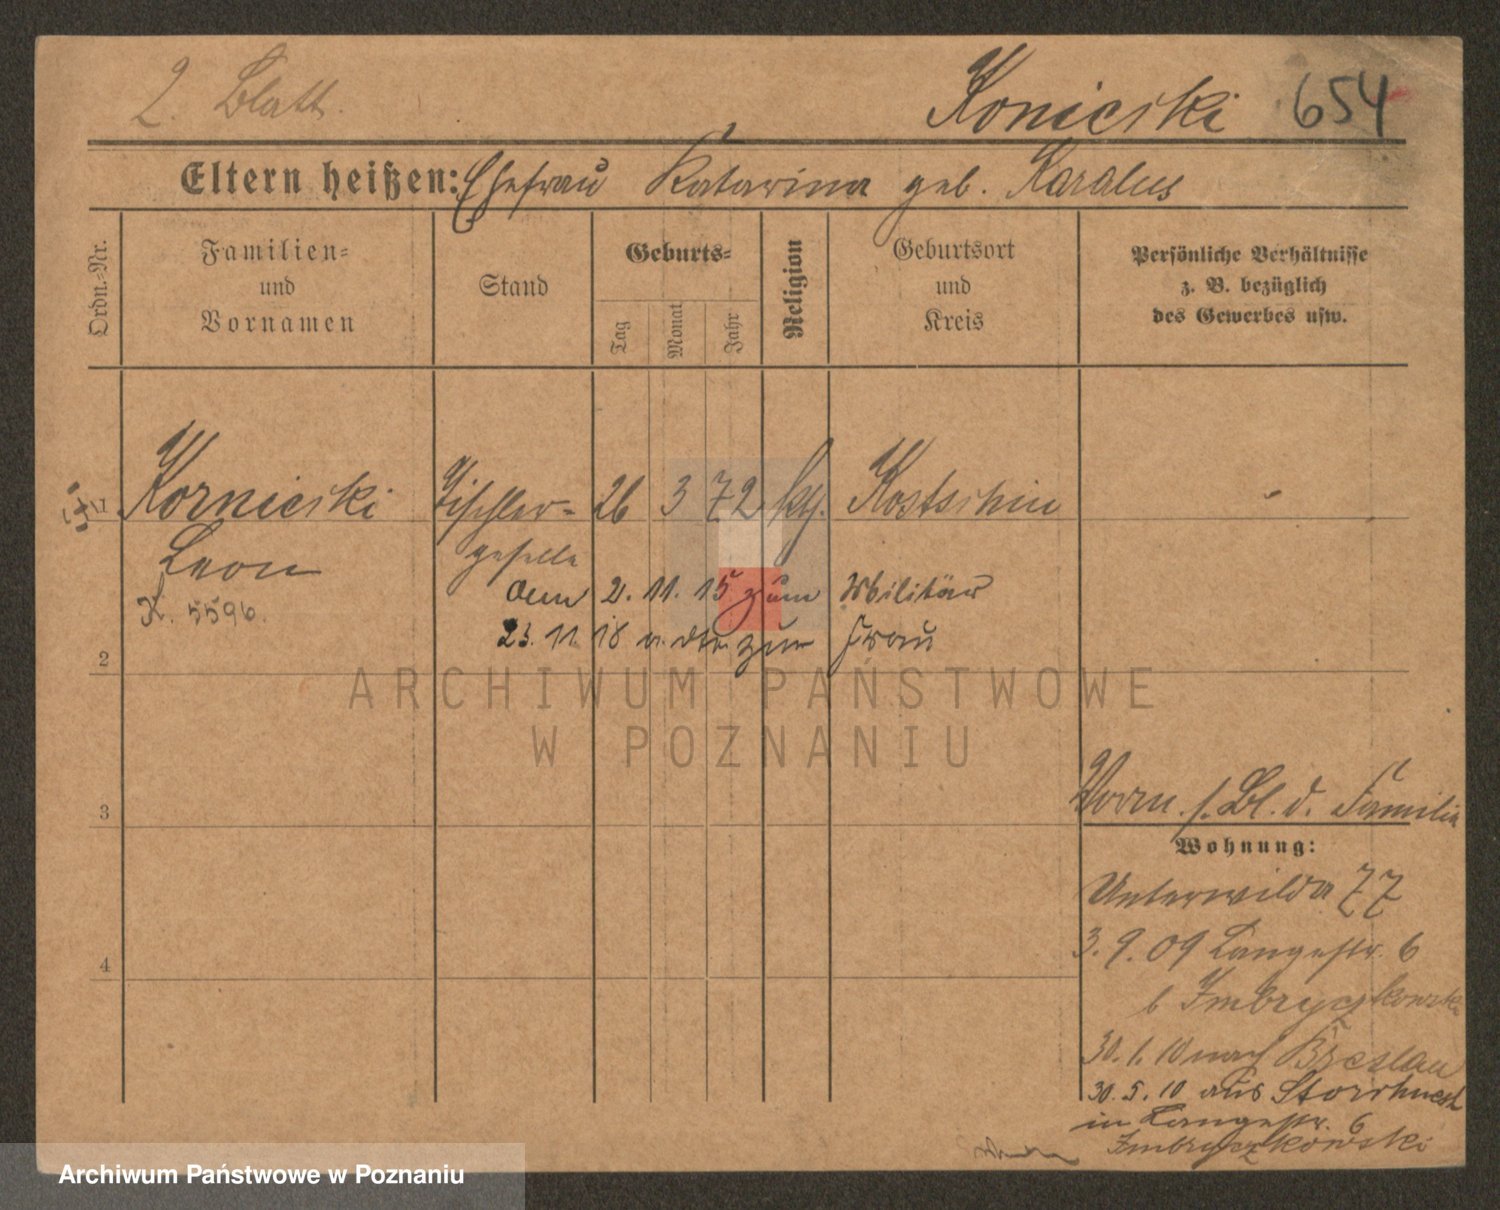 2. Blatt.
Konicski 654
Eltern heißen: Ehefrau Katarina geb. Karalus
Ordn.-Nr.
Familien-
und
Vornamen
Stand
Geburts-
Tag
Monat
Jahr
Religion
Geburtsort
und
Kreis
Persönliche Verhältnisse
z. B. bezüglich
des Gewerbes usw.
1 Kornicski Tischler- 26 3 72 kth. Kostschin
Leon geselle
K. 5596.
2. 11. 15 zum Militär
23. 11. 18 zur Frau
2
ARCHIWUM PAŃSTWOWE
W POZNANIU
3
4
s. Bl. d. Familie
Wohnung:
Unterwilda 77
3. 9. 09 Langestr. 6
b Imbryczkowski
30. 1. 10 nach Breslau
30. 5. 10 aus
in Langestr. 6
Imbryczkowski
Archiwum Państwowe w Poznaniu